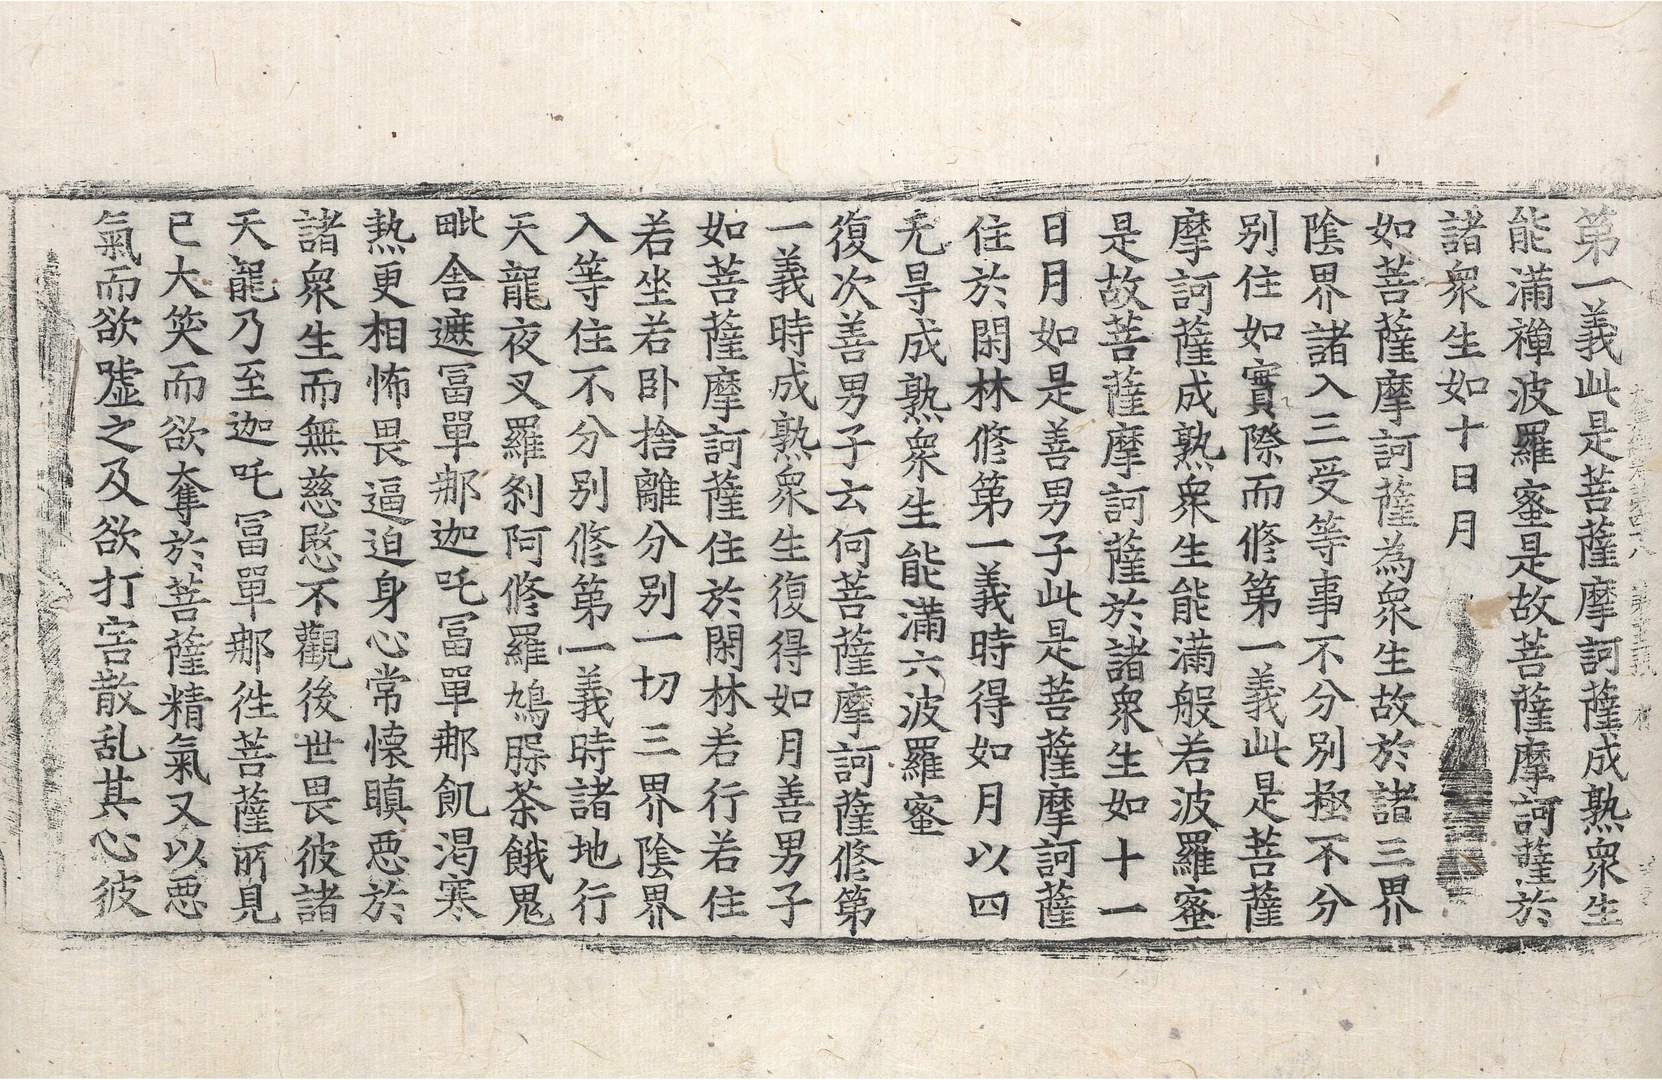 第一義此是菩薩摩訶薩成熟衆生
能滿禪波羅蜜是故菩薩摩訶薩於
諸衆生如十日月
如菩薩摩訶薩為衆生故於諸三界
陰界諸入三受等事不分別極不分
別住如實際而修第一義此是菩薩
摩訶薩成熟衆生能滿般若波羅蜜
是故菩薩摩訶薩於諸衆生如十一
日月如是善男子此是菩薩摩訶薩
住於閑林修第一義時得如月以四
无㝵成熟衆生能滿六波羅蜜
復次善男子云何菩薩摩訶薩修第
一義時成熟衆生復得如月善男子
如菩薩摩訶薩住於閑林若行若住
若坐若卧捨離分别一切三界陰界
入等住不分别修第一義時諸地行
天龍夜叉羅刹阿修羅鳩槃荼餓鬼
毗舍遮冨單那迦吒冨單那飢渴寒
熱更相怖畏逼迫身心常懷瞋惡於
諸衆生而無慈愍不觀後世畏彼諸
天龍乃至迦吒冨單那徃菩薩所見
已大笑而欲奪於菩薩精氣又以惡
氣而欲噓之及欲打害散乱其心彼